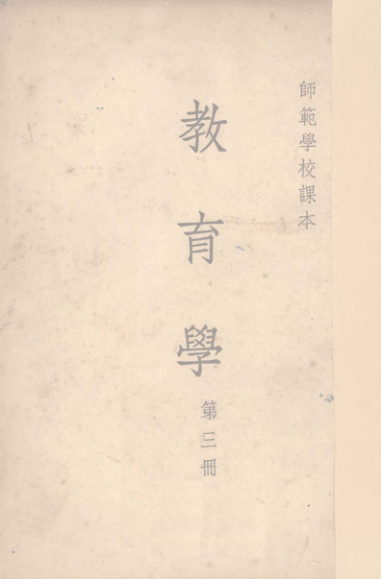 師範學校課本
教育學
第三冊